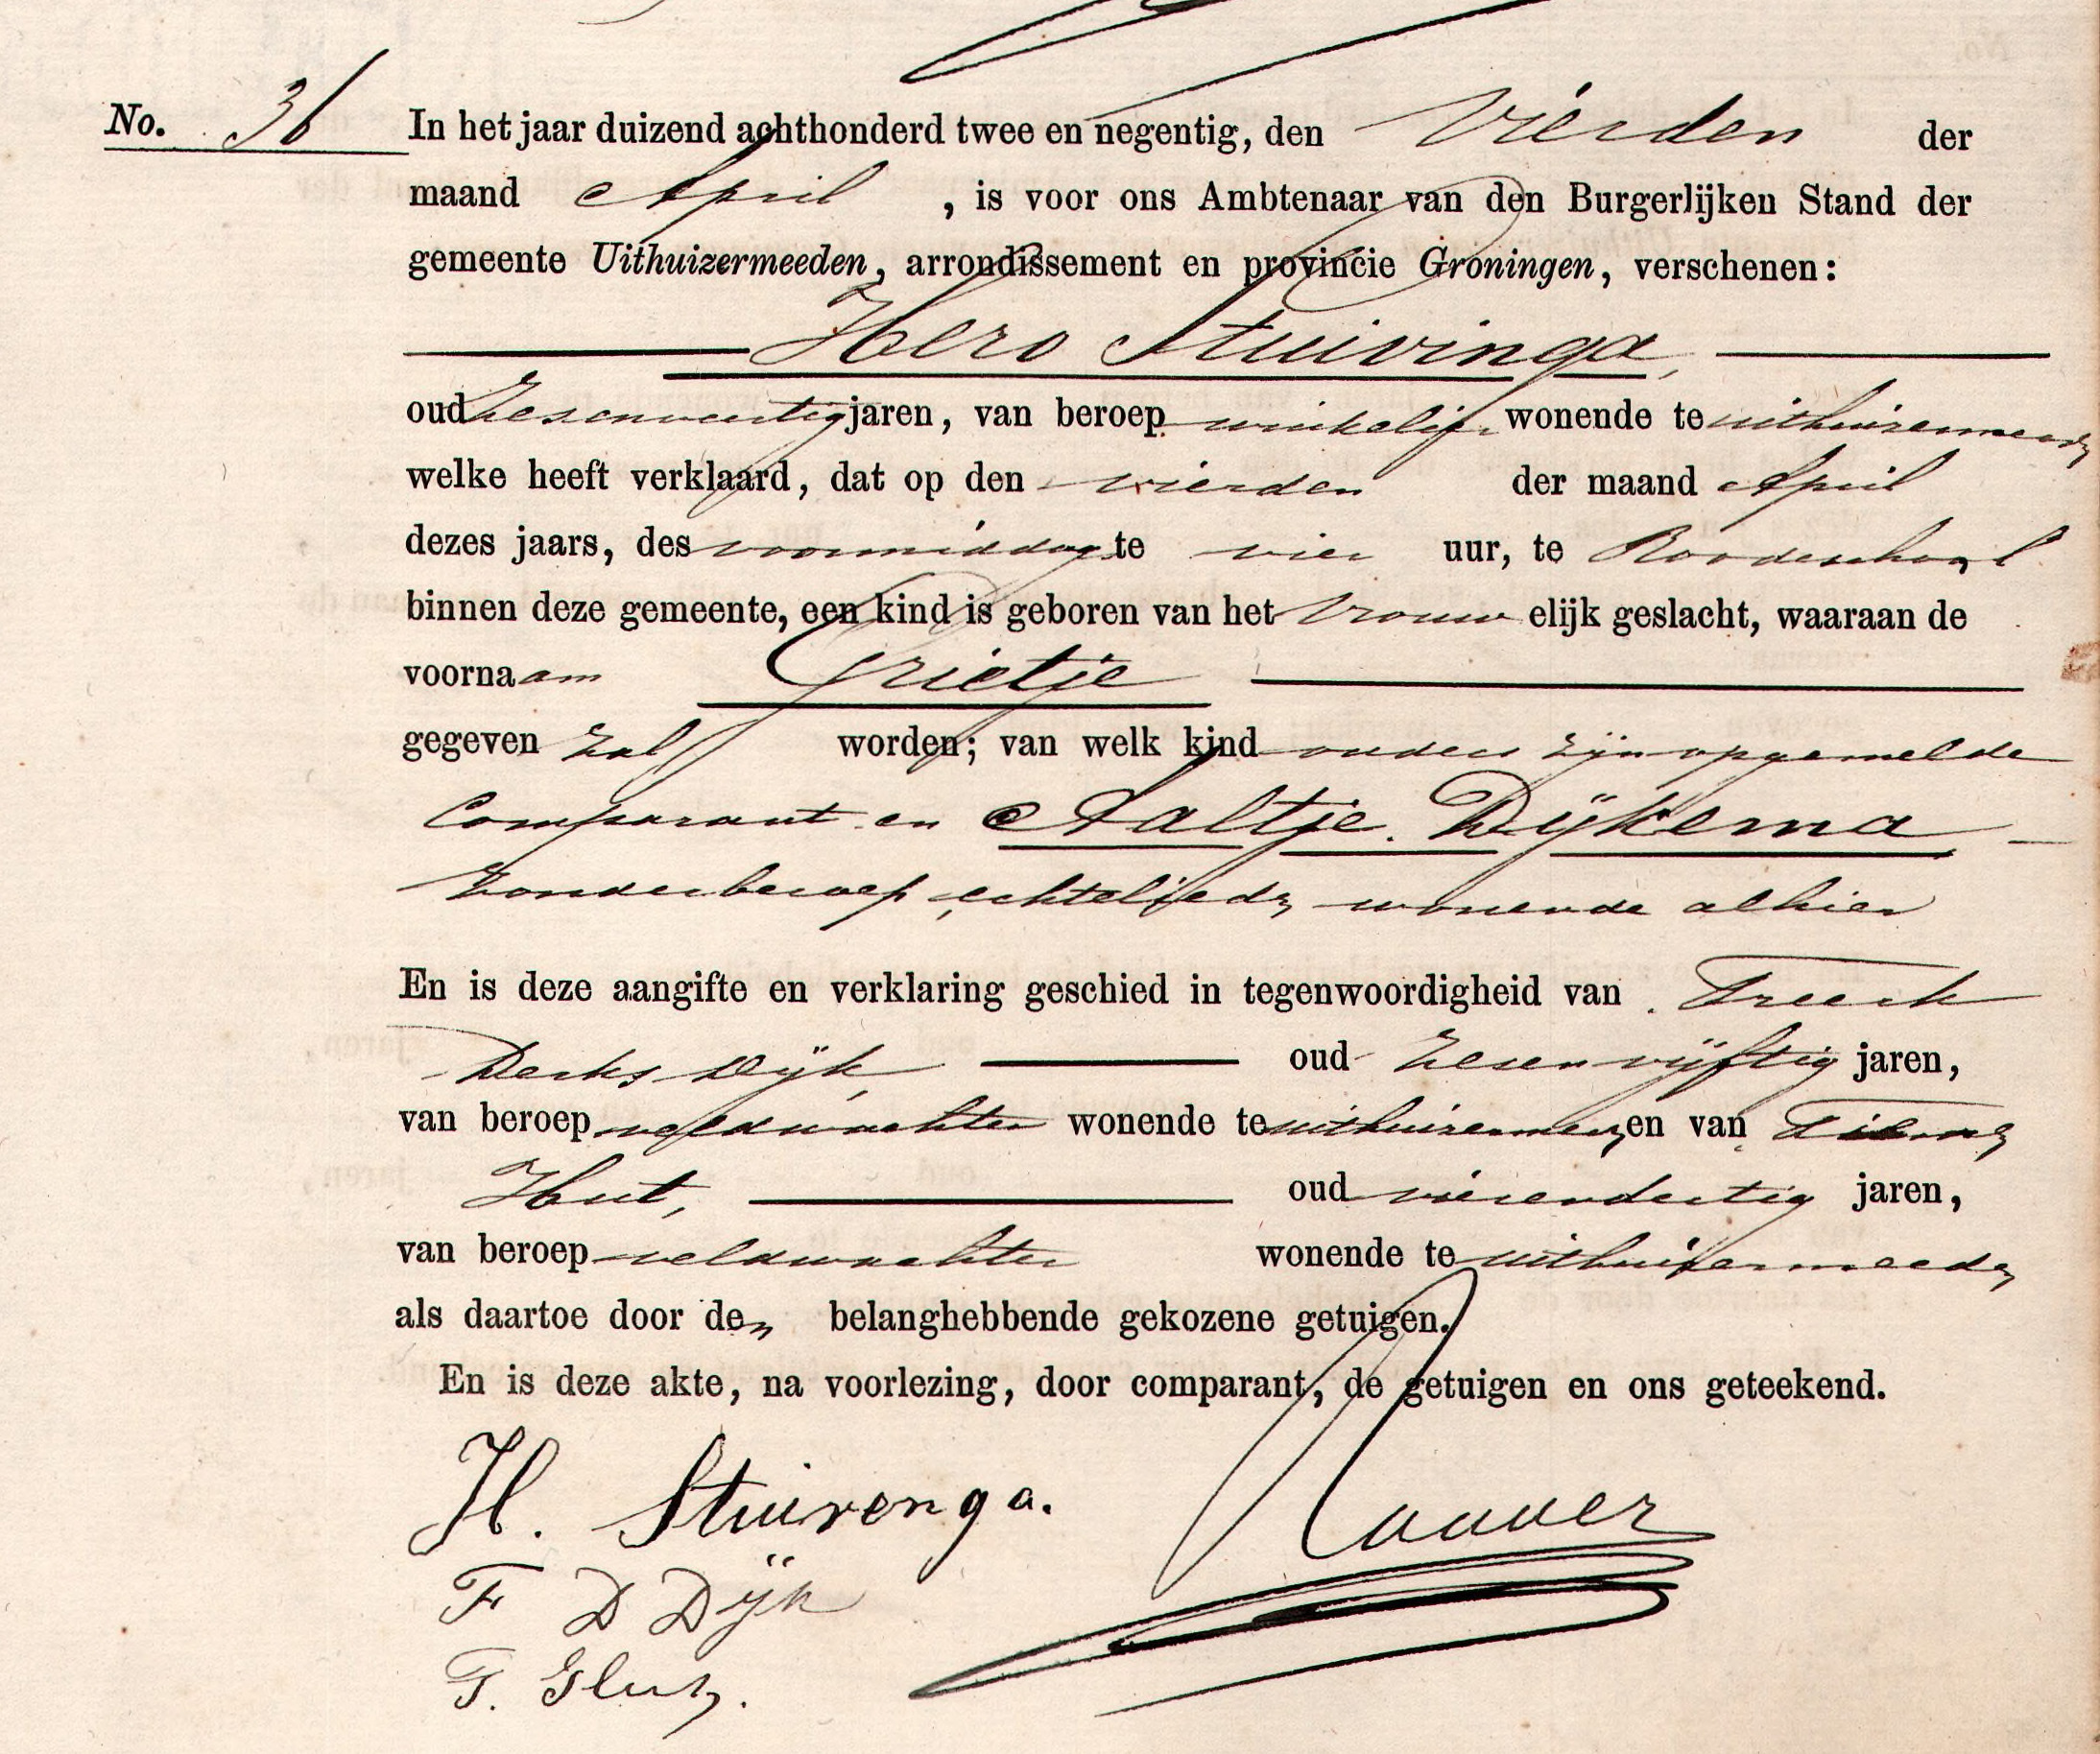 No. 36 In het jaar duizend achthonderd twee en negentig, den Vierden der
maand April, is voor ons Ambtenaar van den Burgerlijken Stand der
gemeente Uithuizermeeden, arrondissement en provincie Groningen, verschenen:
Hero Stuivinga,
oud zesenveertig jaren, van beroep winkelier wonende te uithuizermeeden
welke heeft verklaard, dat op den vierden der maand April
dezes jaars, des voormiddags te vier uur, te Roodeschool
binnen deze gemeente, een kind is geboren van het Vrouwelijk geslacht, waaraan de
voornaam Grietje
gegeven zal worden; van welk kind ouders zijn opgemelde
Comparant en Aaltje Dijkema
zonder beroep, echtelieden wonende alhier
En is deze aangifte en verklaring geschied in tegenwoordigheid van Freerk
Derks Dijk, oud zesenvijftig jaren,
van beroep veldwachter wonende te uithuizermeeden en van
Hut, oud vierendertig jaren,
van beroep veldwachter wonende te uithuizermeeden
als daartoe door den belanghebbende gekozene getuigen.
En is deze akte, na voorlezing, door comparant, de getuigen en ons geteekend.
H. Stuivenga.
F D Dijk
T. Hut.